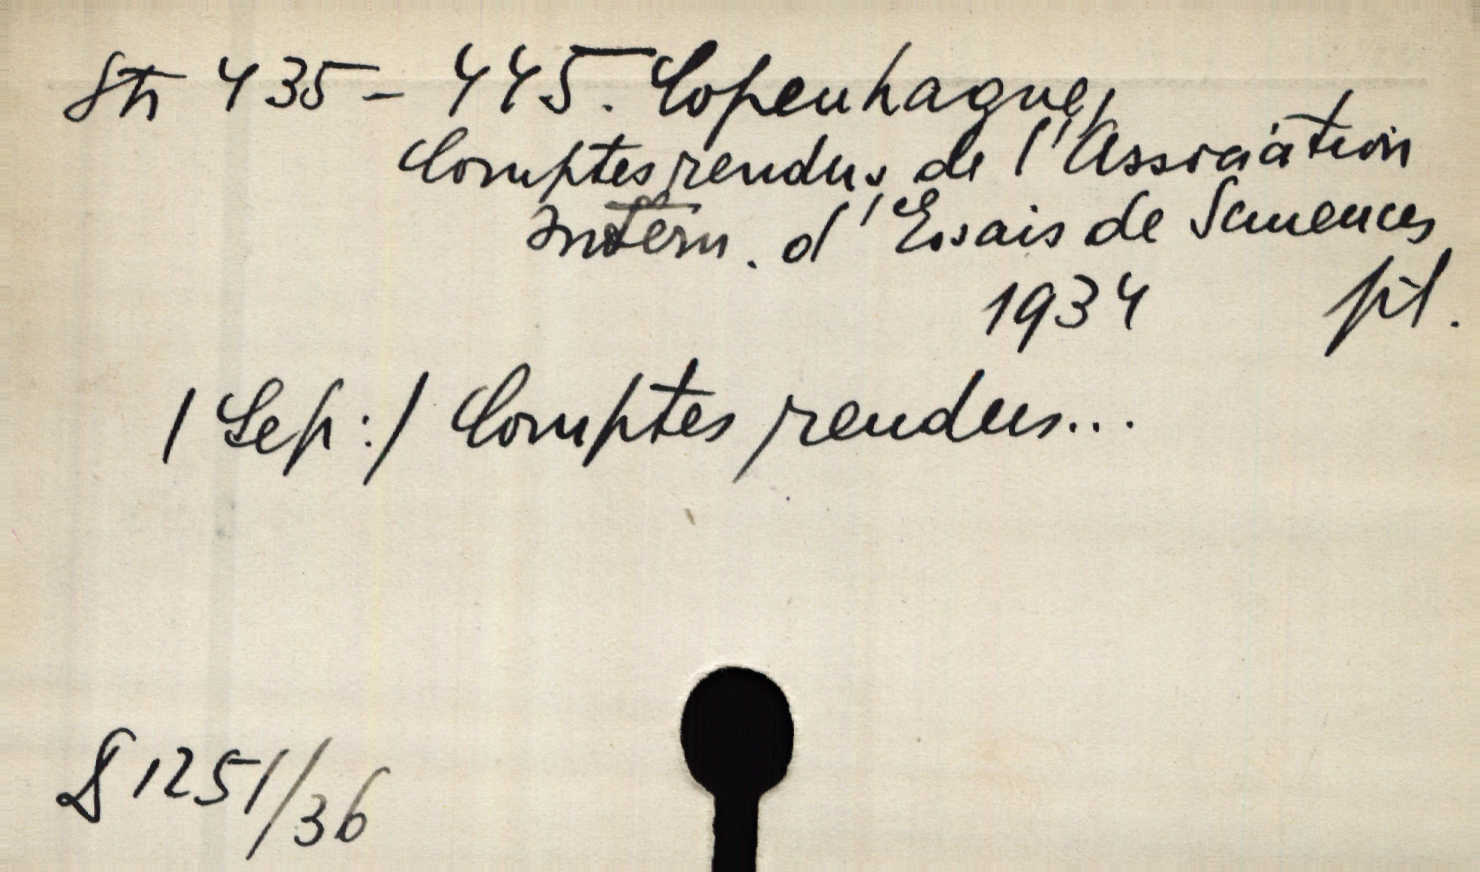 Str 435-445. Copenhague,
Comptes rendus de l'Association
Intern. d'Essais de Semences
1934 pil.
/Sep:/ Comptes rendus...
§ 1251/36